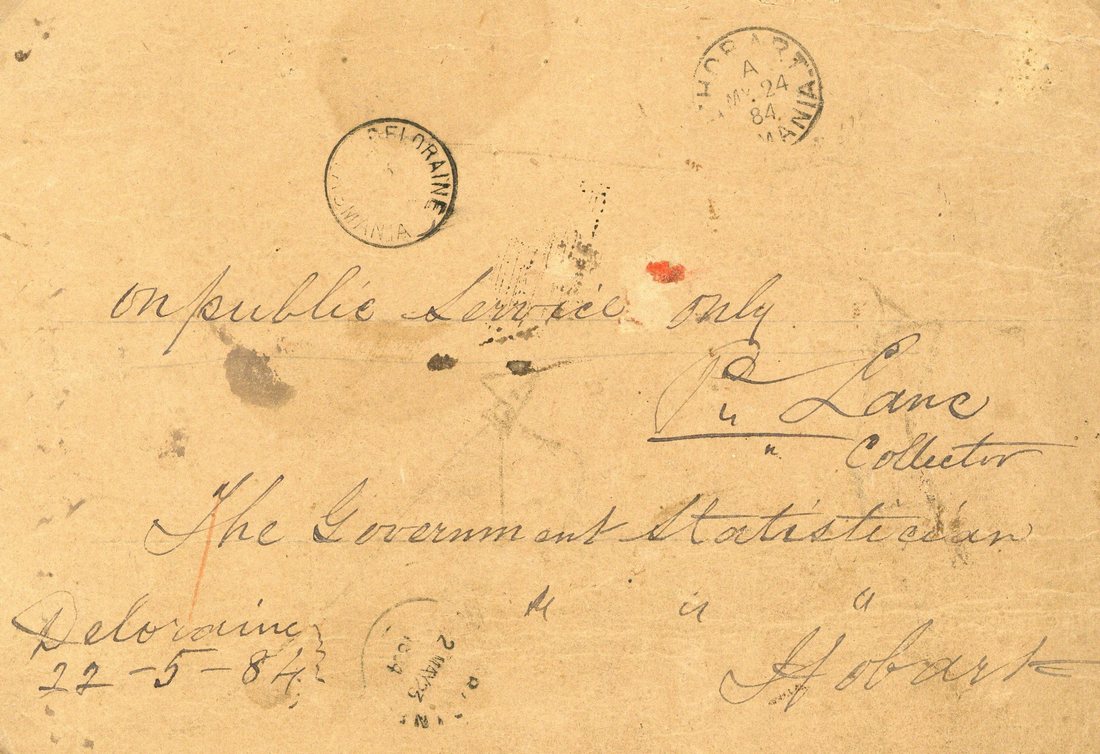 HOBART
A
MY 24
84
MANIA
DELORAINE
SMANIA
on public Service only
P Lane
Collector
The Government Statistician
Deloraine
22-5-84
" " "
Hobart
2 MAY 23
1884